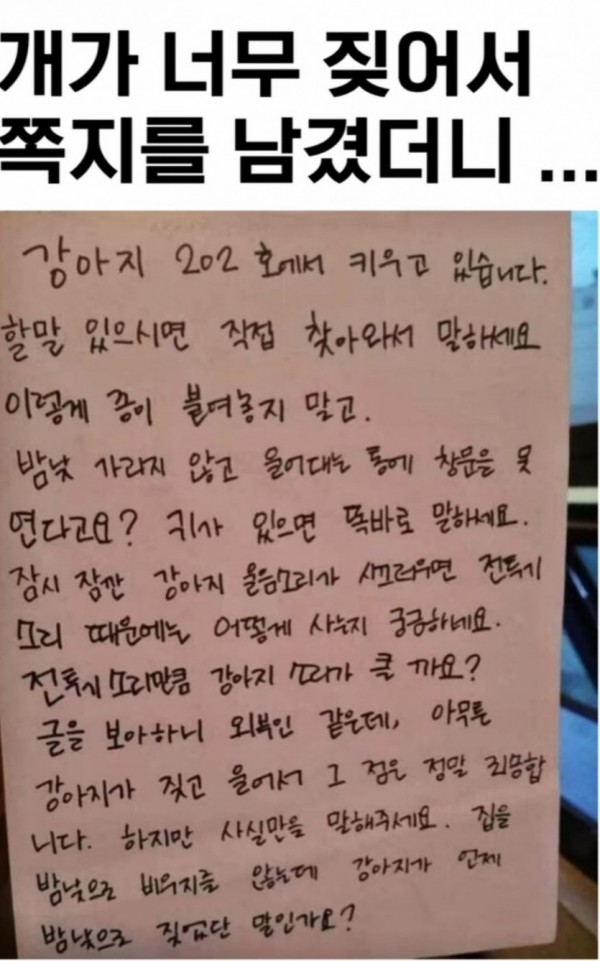 개가 너무 짖어서
쪽지를 남겼더니 ...
강아지 202호에서 키우고 있습니다.
할말 있으시면 직접 찾아와서 말하세요
이렇게 종이 붙여놓지 말고.
밤낮 가라지 않고 울어대는 통에 창문을 못
연다고요? 귀가 있으면 똑바로 말하세요.
잠시 잠깐 강아지 울음소리가 시끄러우면 전투기
소리 때문에는 어떻게 사는지 궁금하네요.
전투기 소리만큼 강아지 소리가 클 까요?
글을 보아하니 외부인 같은데, 아무튼
강아지가 짖고 울어서 그 점은 정말 죄송합
니다. 하지만 사실만을 말해주세요. 집을
밤낮으로 비우지를 않는데 강아지가 언제
밤낮으로 짖었단 말인가요?